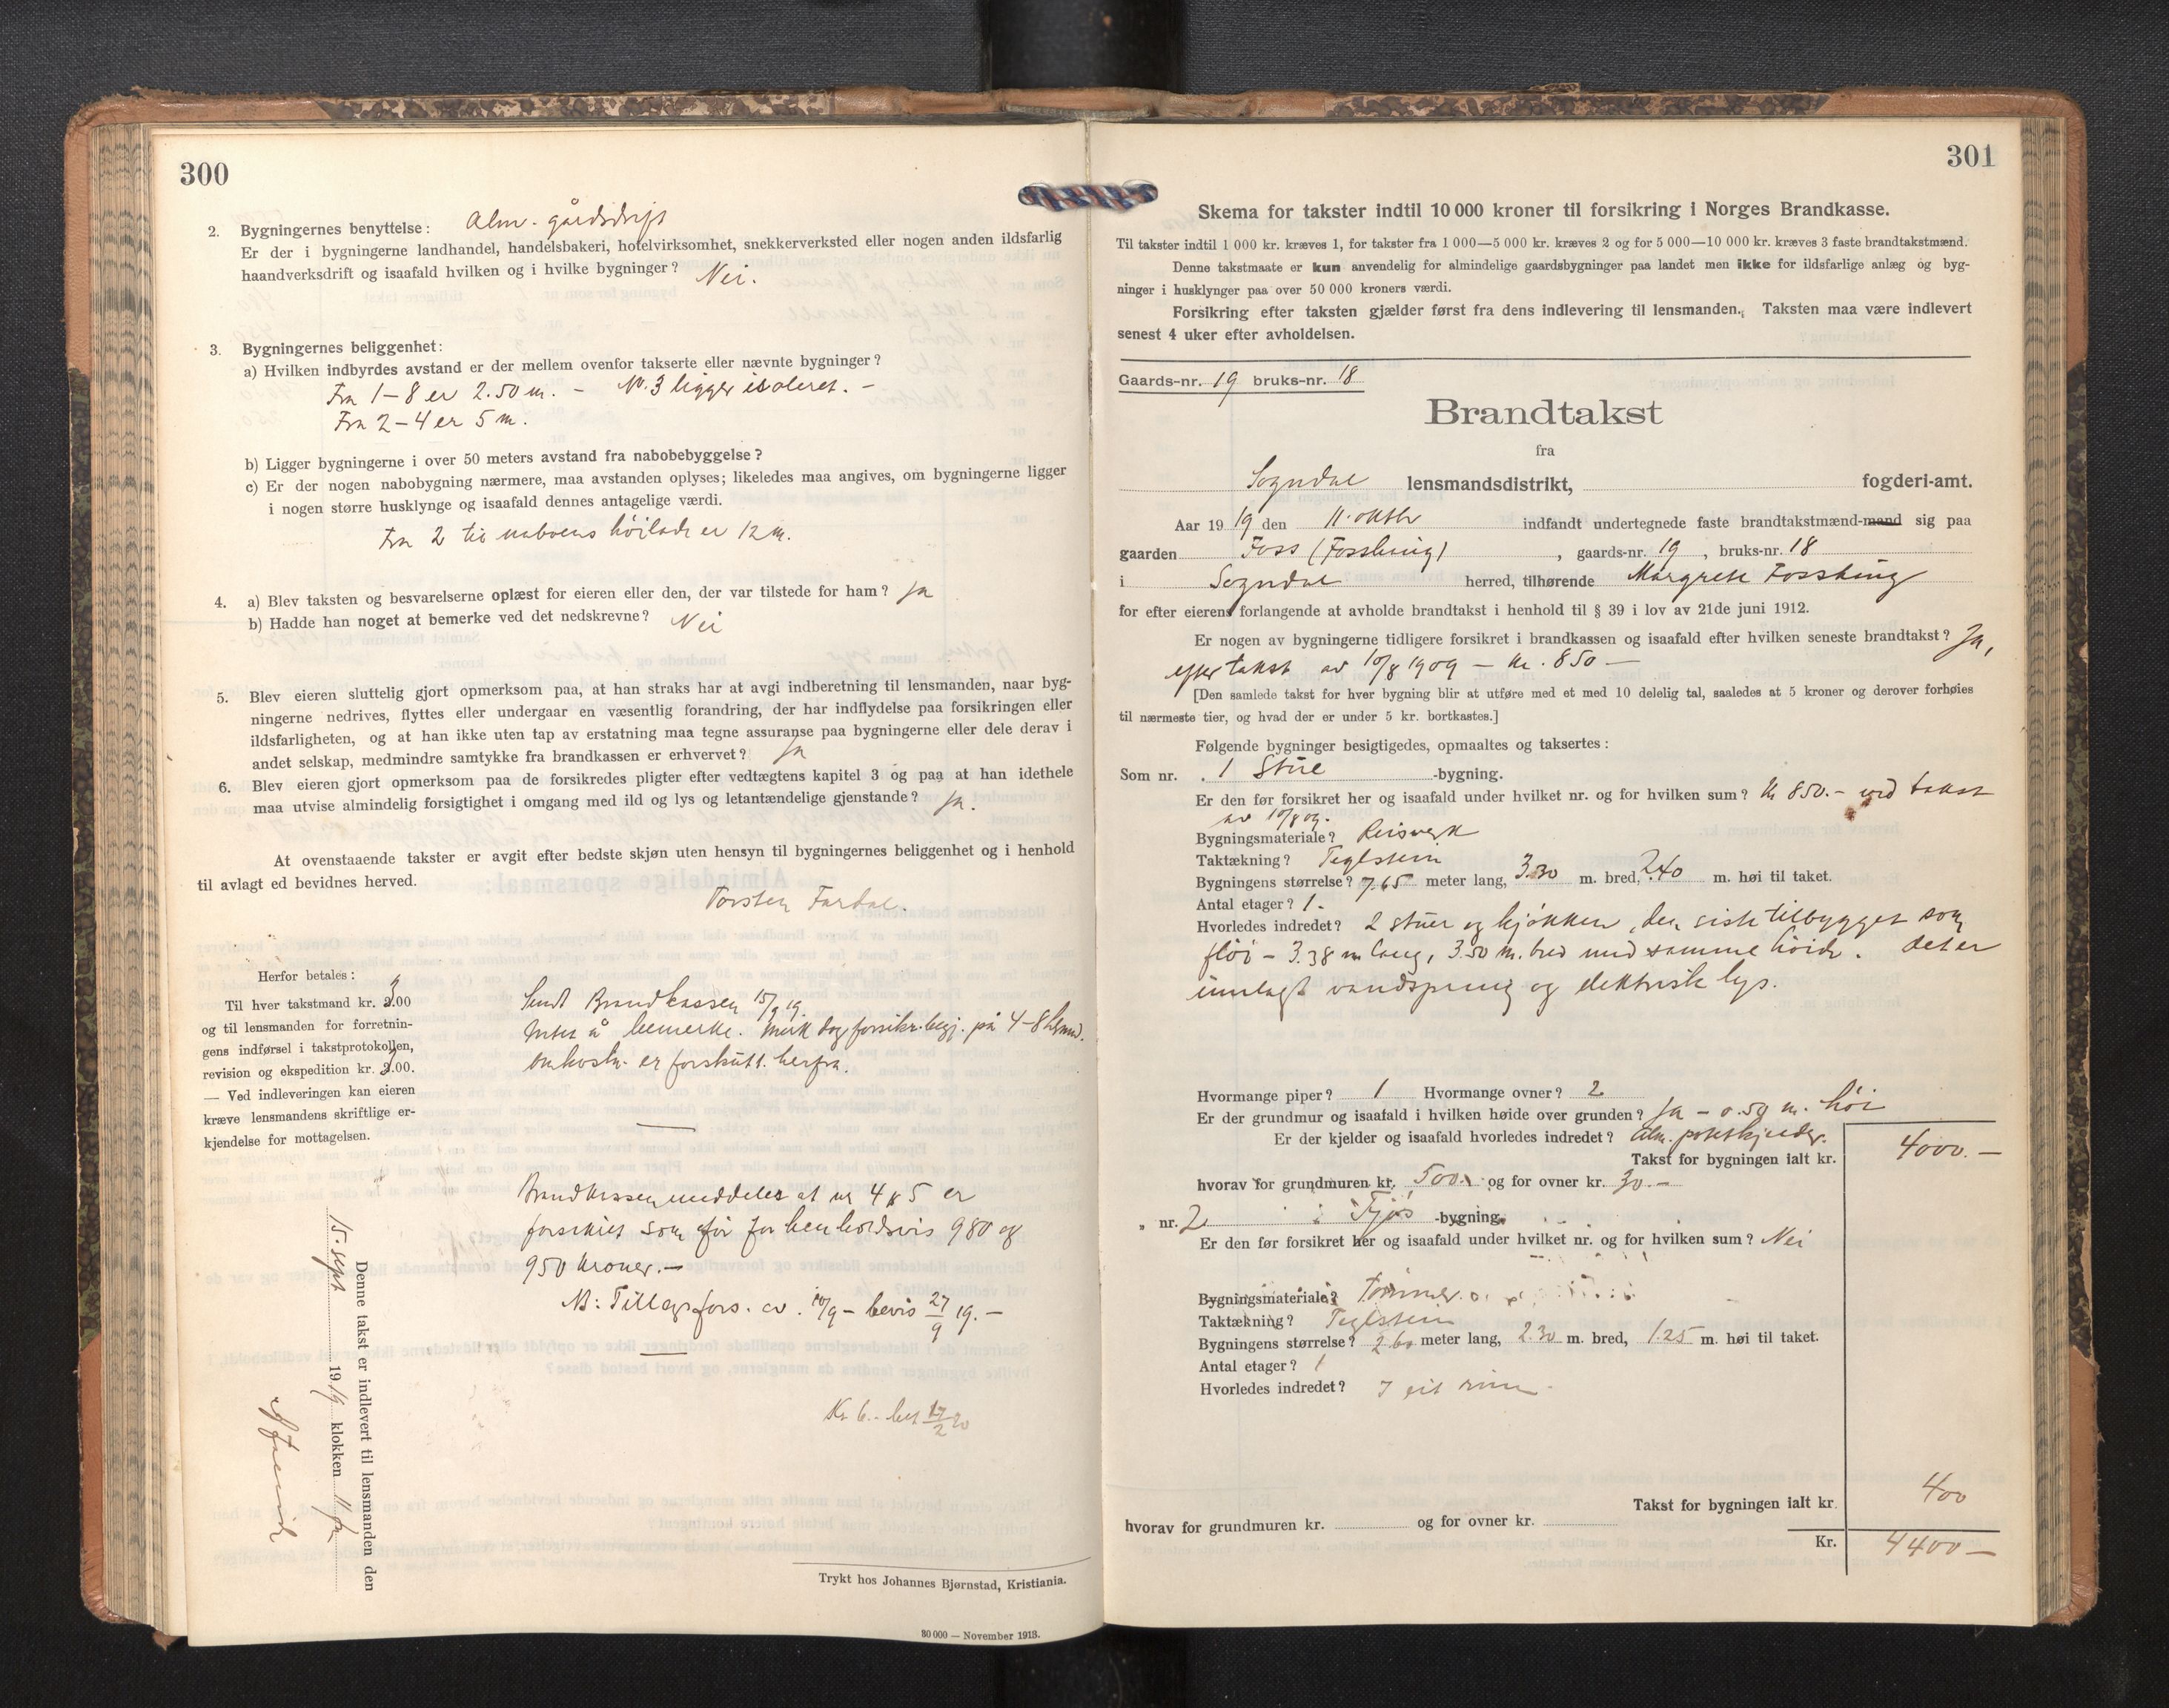 300
2. Bygningernes benyttelse: Alm. gårdsdrift
Er der i bygningerne landhandel, handelsbakeri, hotelvirksomhet, snekkerverksted eller nogen anden ildsfarlig
haandverksdrift og isaafald hvilken og i hvilke bygninger? Nei.
3. Bygningernes beliggenhet:
a) Hvilken indbyrdes avstand er der mellem ovenfor takserte eller nævnte bygninger?
Fra 1–8 er 2.50 m. – Nr. 3 ligger isoleret. –
Fra 2–4 er 5 m.
b) Ligger bygningerne i over 50 meters avstand fra nabobebyggelse?
c) Er der nogen nabobygning nærmere, maa avstanden oplyses; likeledes maa angives, om bygningerne ligger
i nogen større husklynge og isaafald dennes antagelige værdi.
Fra 2 til naboens höilade er 12 m.
4. a) Blev taksten og besvarelserne oplæst for eieren eller den, der var tilstede for ham? Ja
b) Hadde han noget at bemerke ved det nedskrevne? Nei
5. Blev eieren sluttelig gjort opmerksom paa, at han straks har at avgi indberetning til lensmanden, naar byg-
ningerne nedrives, flyttes eller undergaar en væsentlig forandring, der har indflydelse paa forsikringen eller
ildsfarligheten, og at han ikke uten tap av erstatning maa tegne assuranse paa bygningerne eller dele derav i
andet selskap, medmindre samtykke fra brandkassen er erhvervet? Ja
6. Blev eieren gjort opmerksom paa de forsikredes pligter efter vedtægtens kapitel 3 og paa at han idethele
maa utvise almindelig forsigtighet i omgang med ild og lys og letantændelige gjenstande? Ja.
At ovenstaaende takster er avgit efter bedste skjøn uten hensyn til bygningernes beliggenhet og i henhold
til avlagt ed bevidnes herved.
Torsten Fardal.
Herfor betales:
Til hver takstmand kr. 3.00
og til lensmanden for forretnin-
gens indførsel i takstprotokollen,
revision og ekspedition kr. 3.00.
— Ved indleveringen kan eieren
kræve lensmandens skriftlige er-
kjendelse for mottagelsen.
Sendt Brandkassen 15/9 19.
Intet å bemerke. Merk dog forsikr. begj. på 4–8
omkostn. er forskutt. herfra.
Brandkassen meddeler at nr 4 & 5 er
forsikret som för for henholdsvis 980 og
950 kroner. –
NB: Tillægsfors. av 10/9 – bevis 27/9 19. –
Kr 6.– bet 17/2 20
Denne takst er indlevert til lensmanden den
15. sept 1919 klokken 11 fm
Trykt hos Johannes Bjørnstad, Kristiania.
30 000 — November 1913.
301
Skema for takster indtil 10 000 kroner til forsikring i Norges Brandkasse.
Til takster indtil 1 000 kr. kræves 1, for takster fra 1 000—5 000 kr. kræves 2 og for 5 000—10 000 kr. kræves 3 faste brandtakstmænd.
Denne takstmaate er kun anvendelig for almindelige gaardsbygninger paa landet men ikke for ildsfarlige anlæg og byg-
ninger i husklynger paa over 50 000 kroners værdi.
Forsikring efter taksten gjælder først fra dens indlevering til lensmanden. Taksten maa være indlevert
senest 4 uker efter avholdelsen.
Gaards-nr. 19 bruks-nr. 18
Brandtakst
fra
Sogndal lensmandsdistrikt, fogderi-amt.
Aar 1919 den 11. oktbr indfandt undertegnede faste brandtakstmænd-mand sig paa
gaarden Foss (Fossheng), gaards-nr. 19, bruks-nr. 18
i Sogndal herred, tilhørende Margrete Fossheng
for efter eierens forlangende at avholde brandtakst i henhold til § 39 i lov av 21de juni 1912.
Er nogen av bygningerne tidligere forsikret i brandkassen og isaafald efter hvilken seneste brandtakst? Ja,
efter takst av 10/8 1909 – kr. 850 –
[Den samlede takst for hver bygning blir at utføre med et med 10 delelig tal, saaledes at 5 kroner og derover forhøies
til nærmeste tier, og hvad der er under 5 kr. bortkastes.]
Følgende bygninger besigtigedes, opmaaltes og taksertes:
Som nr. 1 Stue -bygning.
Er den før forsikret her og isaafald under hvilket nr. og for hvilken sum? Kr 850.– ved takst
av 10/8 09.
Bygningsmateriale? Reisverk
Taktækning? Teglstein
Bygningens størrelse? 7.65 meter lang, 3.30 m. bred, 2.40 m. høi til taket.
Antal etager? 1.
Hvorledes indredet? 2 stuer og kjökken, den siste tilbygget som
flöi – 3.38 m lang, 3.50 m. bred med samme höide. det er
innlagt vandspring og elektrisk lys.
Hvormange piper? 1 Hvormange ovner? 2
Er der grundmur og isaafald i hvilken høide over grunden? Ja – 0.50 m. höi
Er der kjelder og isaafald hvorledes indredet? Alm. potetkjelder.
Takst for bygningen ialt kr. 4000. –
hvorav for grundmuren kr. 500. og for ovner kr. 30. –
„ nr. 2 Fjös -bygning.
Er den før forsikret her og isaafald under hvilket nr. og for hvilken sum? Nei
Bygningsmateriale? tömmer
Taktækning? Teglstein
Bygningens størrelse? 2.60 meter lang, 2.30 m. bred, 1.25 m. høi til taket.
Antal etager? 1
Hvorledes indredet? I eit rum
Takst for bygningen ialt kr. 400
hvorav for grundmuren kr. og for ovner kr.
Kr. 4400 –